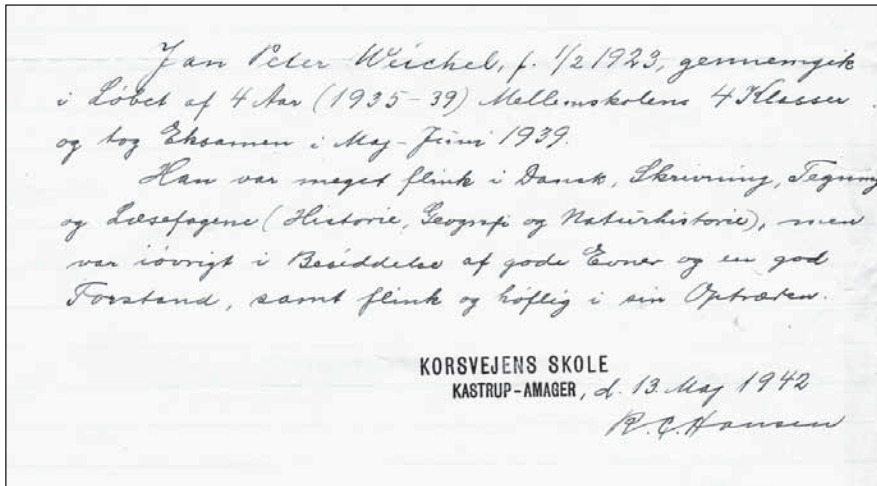 Jan Peter Weichel, f. 1/2 1923, gennemgik
i Løbet af 4 Aar (1935-39) Mellemskolens 4 Klasser
og tog Eksamen i Maj-Juni 1939.
Han var meget flink i Dansk, Skrivning, Tegning
og Læsefagene (Historie, Geografi og Naturhistorie), men
var iøvrigt i Besiddelse af gode Evner og en god
Forstand, samt flink og høflig i sin Optræden.
KORSVEJENS SKOLE
KASTRUP-AMAGER, d. 13. Maj 1942
R.C. Hansen